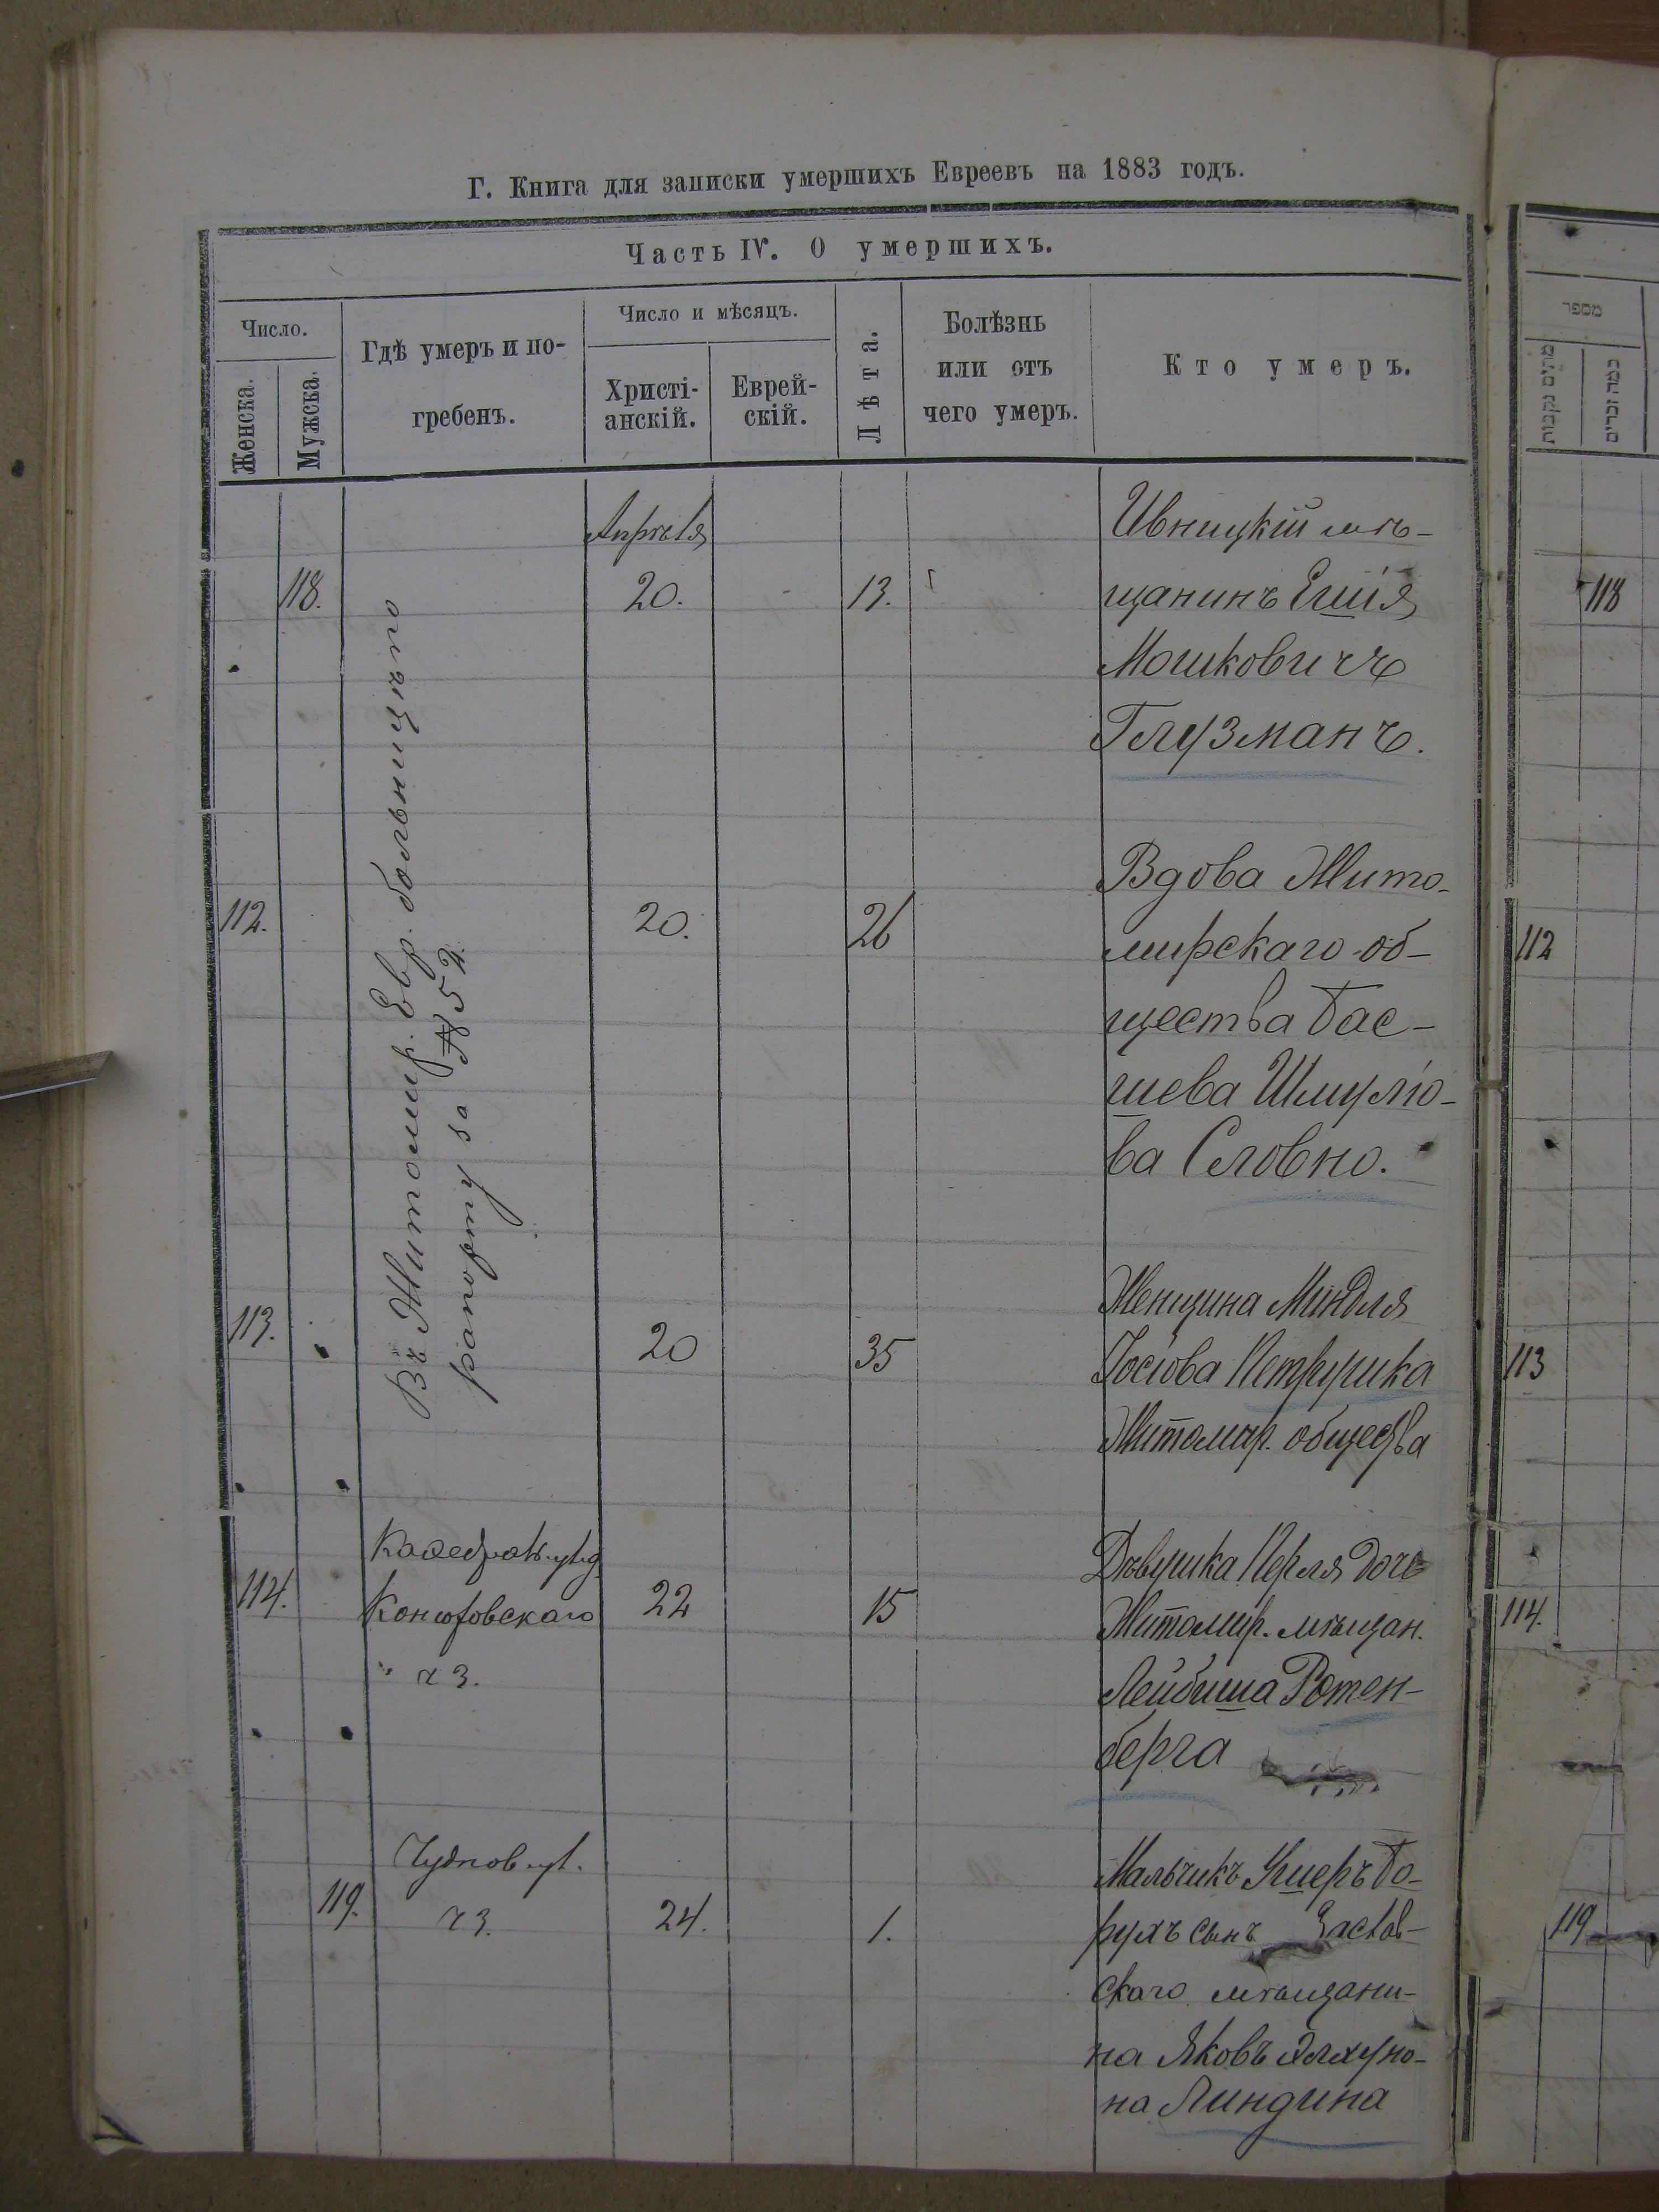 Г. Книга для записки умершихъ Евреевъ на 1883 годъ.
Часть IV. О умершихъ.
Число.
Женска.
Мужска.
Гдѣ умеръ и по-
гребенъ.
Число и мѣсяцъ.
Христі-
анскій.
Еврей-
скій.
Лѣта.
Болѣзнь
или отъ
чего умеръ.
Кто умеръ.
מספר
מתים נקבות
כמה זכרים
Въ Житомир. Евр. больницѣ по
рапорту за № 52.
Апрѣля
118.
20.
13.
Ивницкій мѣ-
щанинъ Ешія
Мошковичъ
Глузманъ.
118
112.
20.
26
Вдова Жито-
мирскаго об-
щества Бас-
шева Шмуліо-
ва Словно.
112
113.
20
35
Женщина Миндля
Іосіова Петрушка
Житомир. общества
113
114.
Кафедральн. ул. д.
ч 3.
22
15
Дѣвушка Перля дочь
Житомир. мѣщан.
Лейбиша Ротен-
берга
114.
119.
Чуднов. ул.
ч 3.
24.
1.
Мальчикъ Ушеръ Бо-
рухъ сынъ
скаго мѣщани-
на Яковъ Элхуно-
на Линдина
119